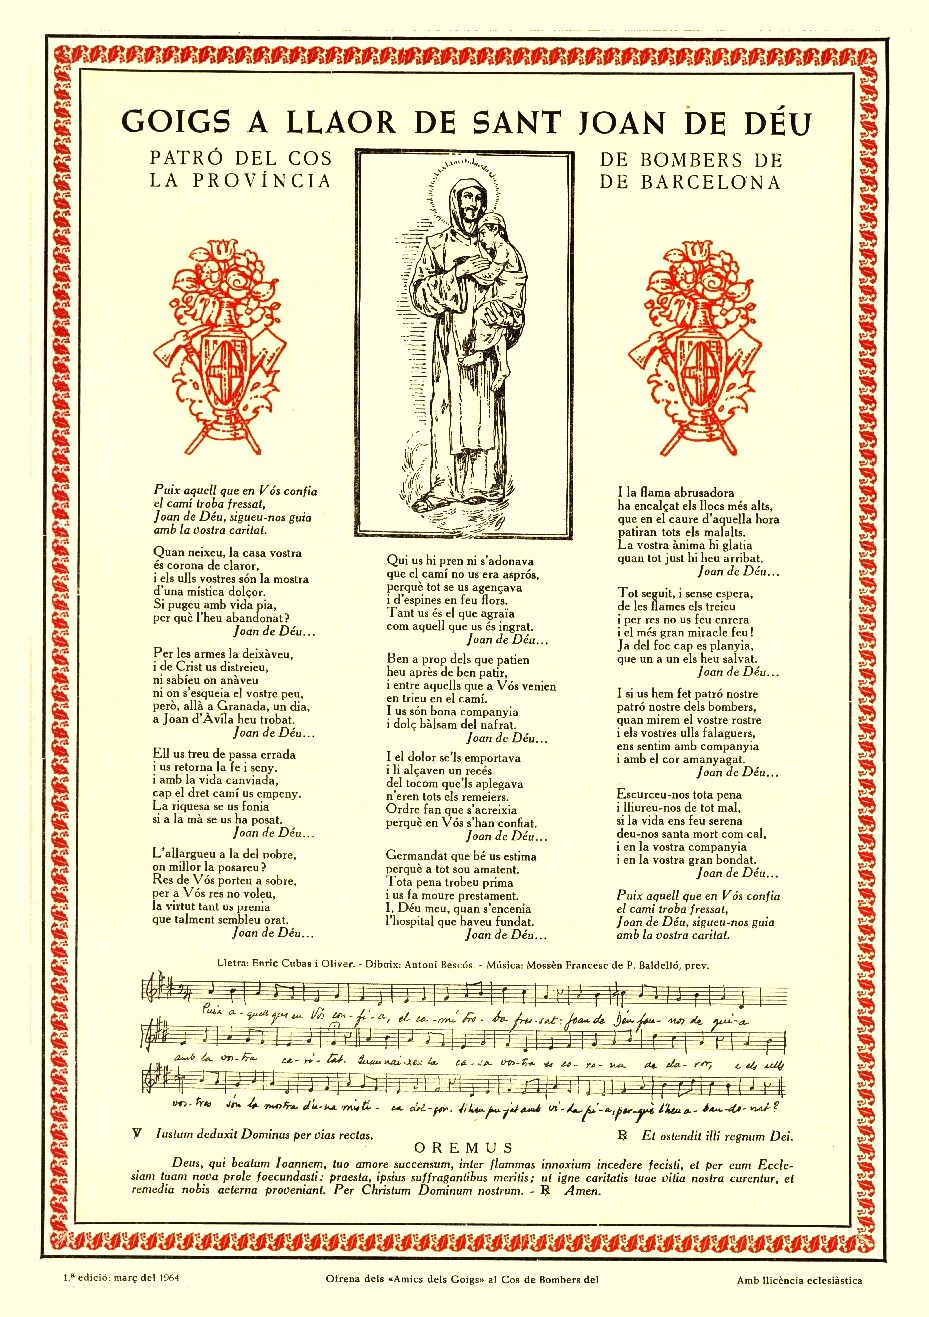 GOIGS A LLAOR DE SANT JOAN DE DÉU
PATRÓ DEL COS
LA PROVÍNCIA
DE BOMBERS DE
DE BARCELONA
Puix aquell que en Vós confia
el camí troba fressat,
Joan de Déu, sigueu-nos guia
amb la vostra caritat.
Quan neixeu, la casa vostra
és corona de claror,
i els ulls vostres són la mostra
d'una mística dolçor.
Si pugeu amb vida pia,
per què l'heu abandonat?
Joan de Déu...
Per les armes la deixàveu,
i de Crist us distreieu,
ni sabíeu on anàveu
ni on s'esqueia el vostre peu,
però, allà a Granada, un dia,
a Joan d'Àvila heu trobat.
Joan de Déu...
Ell us treu de passa errada
i us retorna la fe i seny.
i amb la vida canviada,
cap el dret camí us empeny.
La riquesa se us fonia
si a la mà se us ha posat.
Joan de Déu...
L'allargueu a la del pobre,
on millor la posareu?
Res de Vós porteu a sobre,
per a Vós res no voleu,
la virtut tant us prenia
que talment sembleu orat.
Joan de Déu...
Qui us hi pren ni s'adonava
que el camí no us era asprós,
perquè tot se us agençava
i d'espines en feu flors.
Tant us és el que agraïa
com aquell que us és ingrat.
Joan de Déu...
Ben a prop dels que patien
heu après de ben patir,
i entre aquells que a Vós venien
en trieu en el camí.
I us són bona companyia
i dolç bàlsam del nafrat.
Joan de Déu...
I el dolor se'ls emportava
i li alçaven un recés
del tocom que'ls aplegava
n'eren tots els remeiers.
Ordre fan que s'acreixia
perquè en Vós s'han confiat.
Joan de Déu...
Germandat que bé us estima
perquè a tot sou amatent.
Tota pena trobeu prima
i us fa moure prestament.
I, Déu meu, quan s'encenia
l'hospital que haveu fundat.
Joan de Déu...
I la flama abrusadora
ha encalçat els llocs més alts,
que en el caure d'aquella hora
patiran tots els malalts.
La vostra ànima hi glatia
quan tot just hi heu arribat.
Joan de Déu...
Tot seguit, i sense espera,
de les flames els treieu
i per res no us feu enrera
i el més gran miracle feu!
Ja del foc cap es planyia,
que un a un els heu salvat.
Joan de Déu...
I si us hem fet patró nostre
patró nostre dels bombers,
quan mirem el vostre rostre
i els vostres ulls falaguers,
ens sentim amb companyia
i amb el cor amanyagat.
Joan de Déu...
Escurceu-nos tota pena
i lliureu-nos de tot mal,
si la vida ens feu serena
deu-nos santa mort com cal,
i en la vostra companyia
i en la vostra gran bondat.
Joan de Déu...
Puix aquell que en Vós confia
el camí troba fressat,
Joan de Déu, sigueu-nos guia
amb la vostra caritat.
Lletra: Enric Cubas i Oliver. - Dibuix: Antoni Bescós. - Música: Mossèn Francesc de P. Baldelló, prev.
Puix a-quell que en Vós con-fi-a, el ca-mí tro-ba fres-sat: Joan de Déu seu-nos de gui-a
amb la vos-tra ca-ri-tat. Quan nai-xeu la ca-sa vos-tra és co-ro-na de cla-ror, i els ulls
vos-tres són la mostra d'u-na místi-ca dol-çor. Si heu pu-jat amb vi-da pi-a, per-què l'heu a-ban-do-nat?
℣ Iustum deduxit Dominus per vias rectas.
℟ Et ostendit illi regnum Dei.
OREMUS
Deus, qui beatum Ioannem, tuo amore succensum, inter flammas innoxium incedere fecisti, et per eum Eccle-
siam tuam nova prole foecundasti: praesta, ipsius suffragantibus meritis; ut igne caritatis tuae vitia nostra curentur, et
remedia nobis aeterna proveniant. Per Christum Dominum nostrum. - ℟ Amen.
1.ª edició: març del 1964
Ofrena dels «Amics dels Goigs» al Cos de Bombers del
Amb llicència eclesiàstica